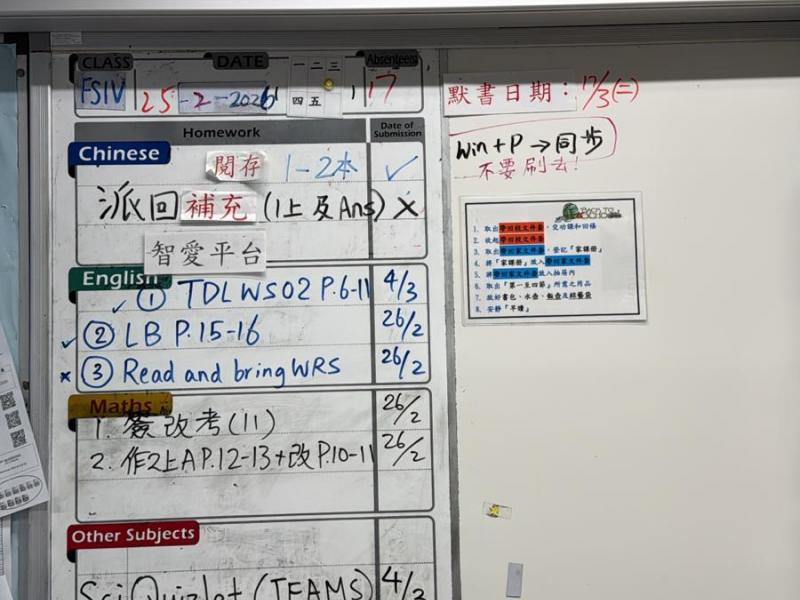 CLASS DATE Absentees
FSIV 25-2-2026 一 二 三 四 五 17
Homework Date of Submission
Chinese
閱存 1-2本 ✓
派回補充(1上及Ans) ×
智愛平台
English
✓ ① TDLWS02 P.6-11 4/3
✓ ② LB P.15-16 26/2
× ③ Read and bring WRS 26/2
Maths
1. 簽改考(11) 26/2
2. 作2上A P.12-13+改P.10-11 26/2
Other Subjects
Sci Quizlet (TEAMS) 4/3
默書日期：17/3(二)
Win + P → 同步
不要刷去！
BACK TO SCHOOL
1. 取出學回校文件套，交功課和回條
2. 收起學回校文件套
3. 取出學回家文件套，登記「家課冊」
4. 將「家課冊」放入學回家文件套
5. 將學回家文件套放入抽屜內
6. 取出「第一至四節」所需之用品
7. 放好書包、水壺、飯壺及
8. 安靜「早讀」